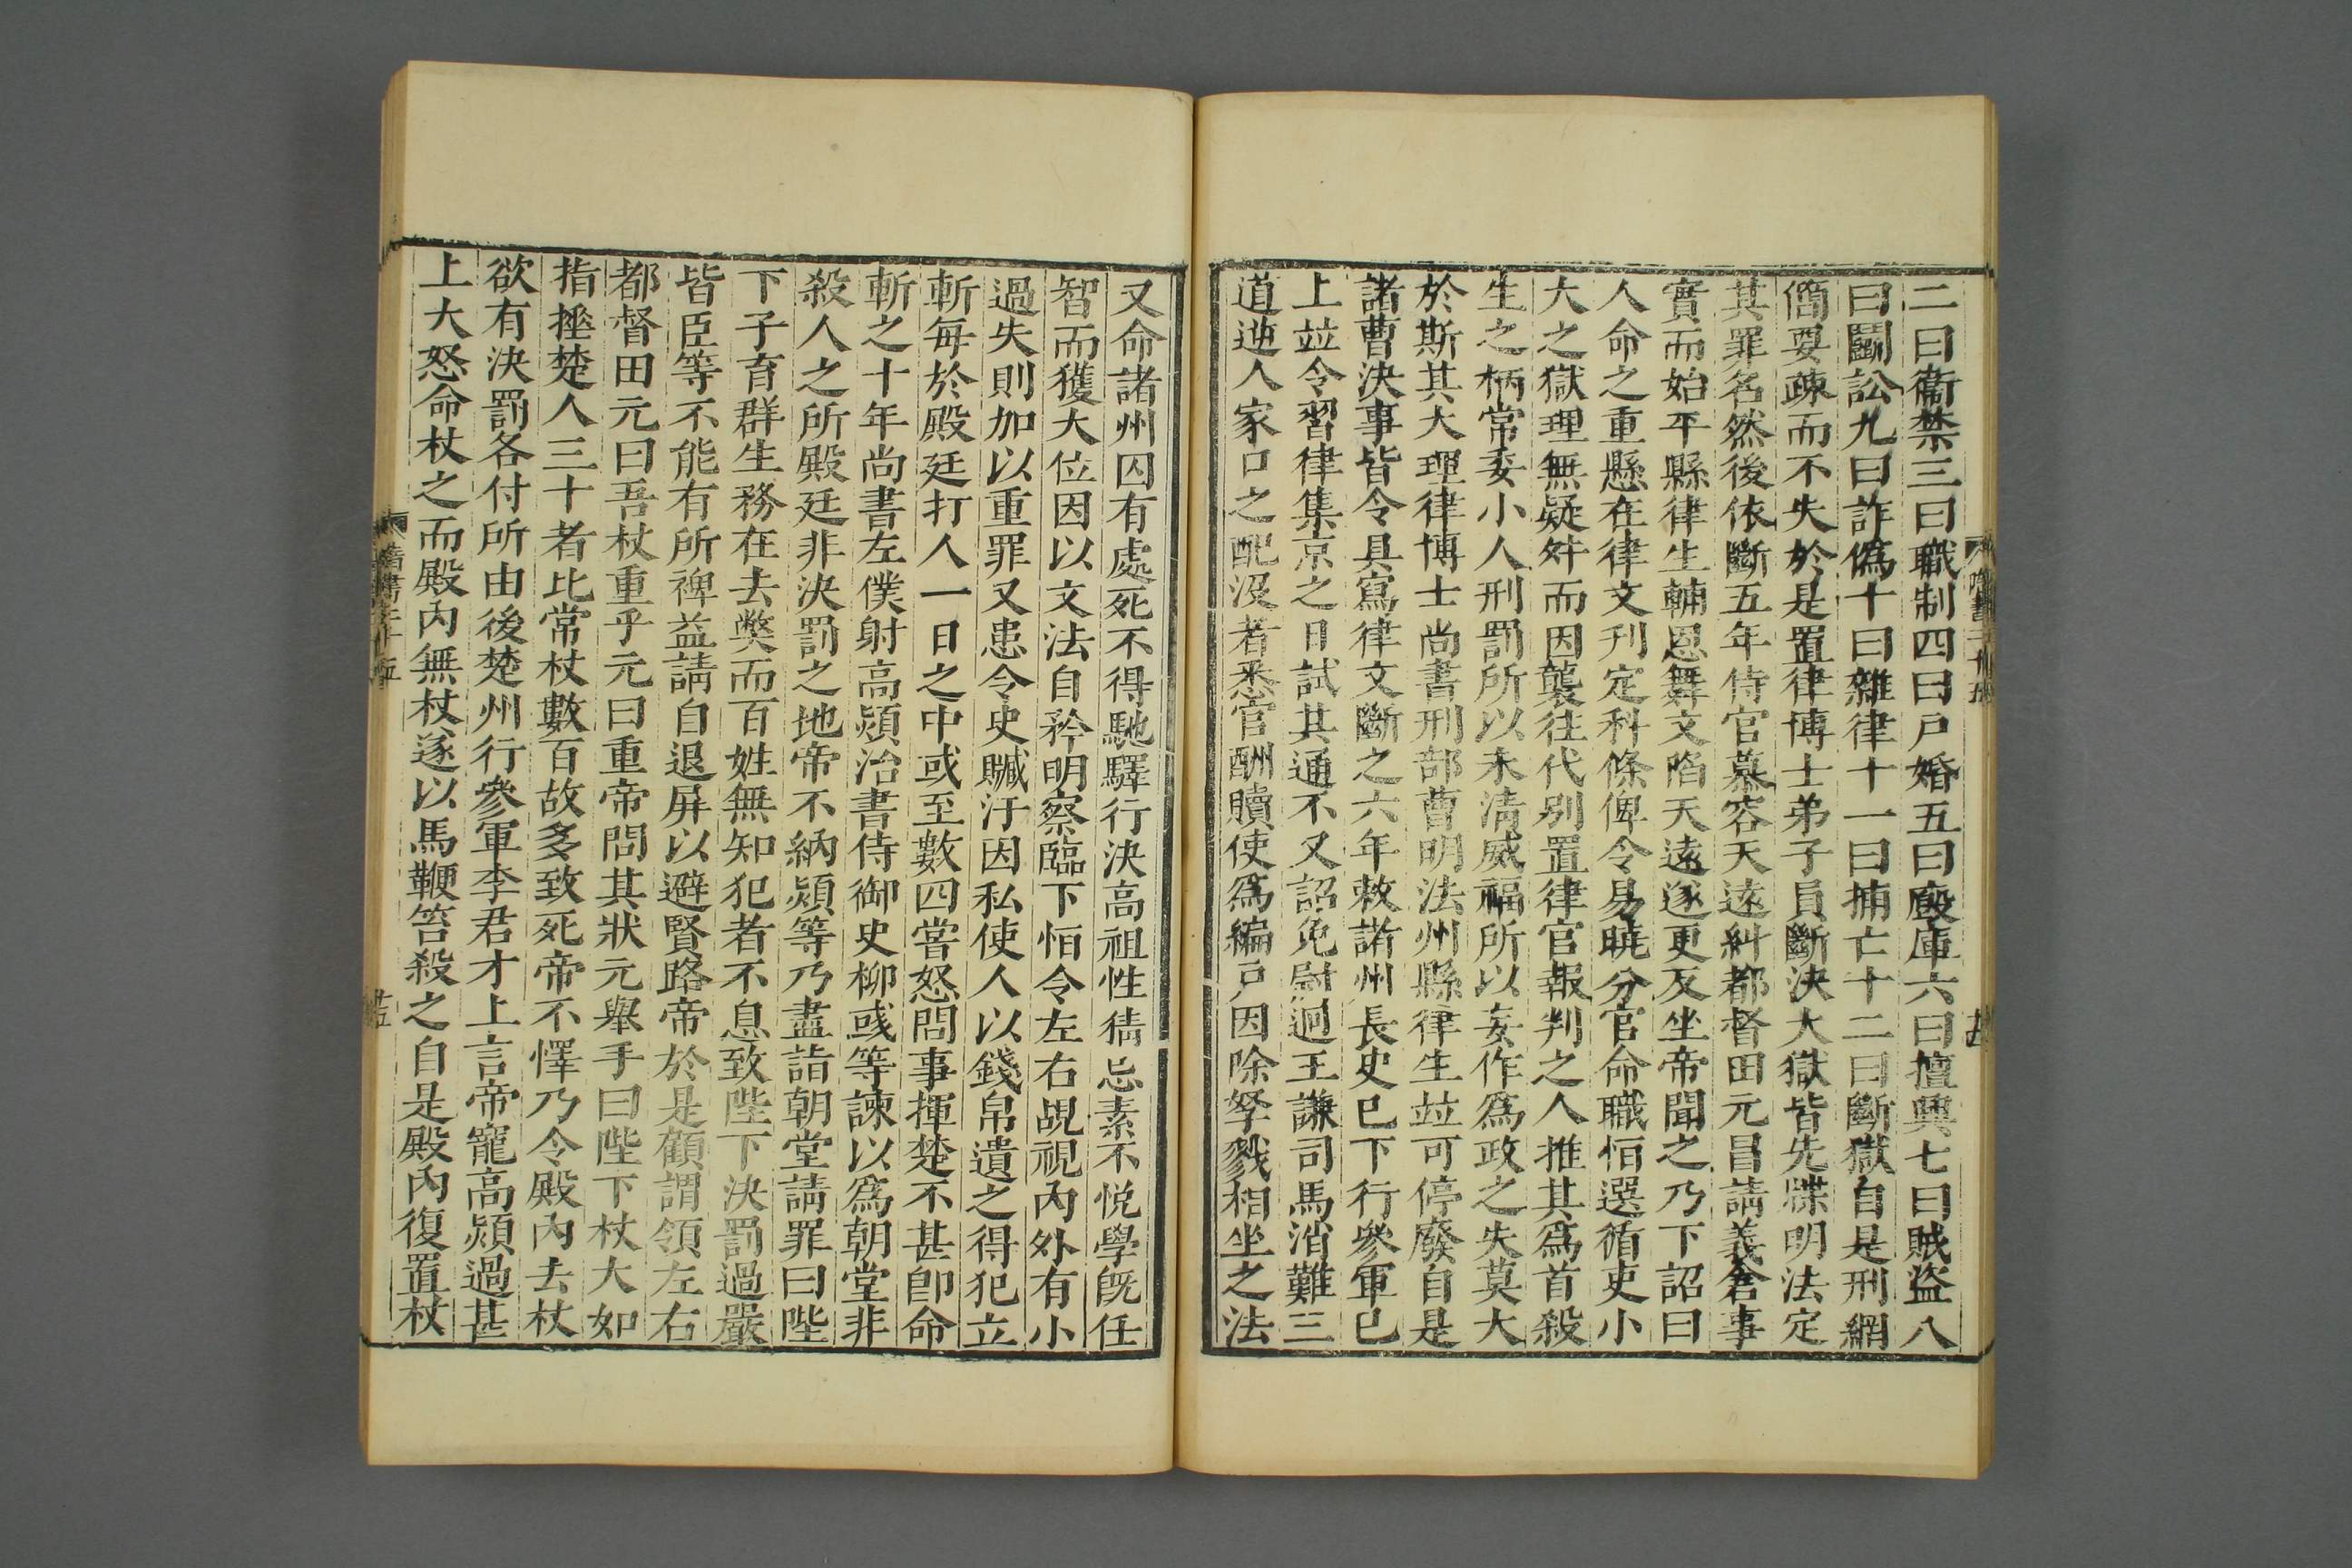 二曰衞禁三曰職制四曰戸婚五曰廏庫六曰擅興七曰賊盜八
曰鬭訟九曰詐僞十曰雜律十一曰捕亡十二曰斷獄自是刑網
簡要疎而不失於是置律博士弟子員斷決大獄皆先牒明法定
其罪名然後依斷五年侍官慕容天遠糾都督田元冒請義倉事
實而始平縣律生輔恩舞文陷天遠遂更反坐帝聞之乃下詔曰
人命之重懸在律文刋定科條俾令易曉分官命職恒選循吏小
大之獄理無疑舛而因襲往代别置律官報判之人推其爲首殺
生之柄常委小人刑罰所以未清威福所以妄作爲政之失莫大
於斯其大理律博士尚書刑部曹明法州縣律生竝可停廢自是
諸曹決事皆令具寫律文斷之六年敕諸州長史已下行參軍已
上竝令習律集京之日試其通不又詔免尉迥王謙司馬消難三
道逆人家口之配没者悉官酬贖使爲編戸因除孥戮相坐之法
又命諸州囚有處死不得馳驛行決高祖性猜忌素不悦學旣任
智而獲大位因以文法自矜明察臨下恒令左右覘視内外有小
過失則加以重罪又患令史贓汙因私使人以錢帛遺之得犯立
斬每於殿廷打人一日之中或至數四嘗怒問事揮楚不甚卽命
斬之十年尚書左僕射高熲治書侍御史柳彧等諫以爲朝堂非
殺人之所殿廷非決罰之地帝不納熲等乃盡詣朝堂請罪曰陛
下子育群生務在去獘而百姓無知犯者不息致陛下決罰過嚴
皆臣等不能有所裨益請自退屏以避賢路帝於是顧謂領左右
都督田元曰吾杖重乎元曰重帝問其狀元舉手曰陛下杖大如
指捶楚人三十者比常杖數百故多致死帝不懌乃令殿内去杖
欲有決罰各付所由後楚州行參軍李君才上言帝寵高熲過甚
上大怒命杖之而殿内無杖遂以馬鞭笞殺之自是殿内復置杖
隋書二十五